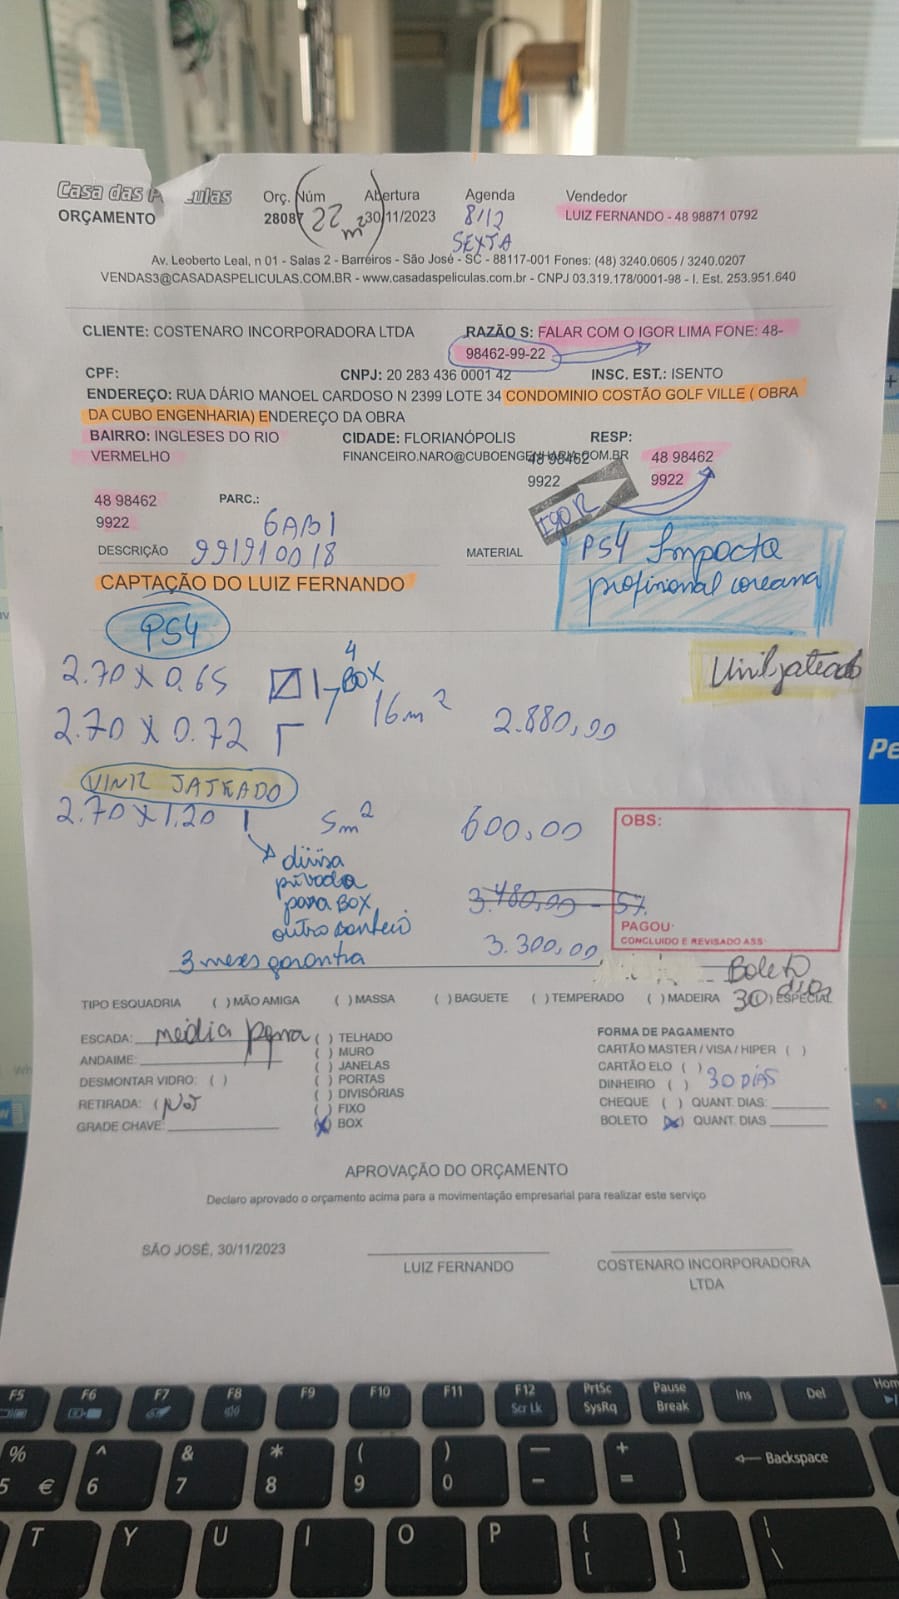 Casa das P culas
ORÇAMENTO
Orç. Núm
28087
22 m²
Abertura
30/11/2023
Agenda
8/12
SEXTA
Vendedor
LUIZ FERNANDO - 48 98871 0792
Av. Leoberto Leal, n 01 - Salas 2 - Barreiros - São José - SC - 88117-001 Fones: (48) 3240.0605 / 3240.0207
VENDAS3@CASADASPELICULAS.COM.BR - www.casadaspeliculas.com.br - CNPJ 03.319.178/0001-98 - I. Est. 253.951.640
CLIENTE: COSTENARO INCORPORADORA LTDA
RAZÃO S: FALAR COM O IGOR LIMA FONE: 48-
98462-99-22
CPF:
CNPJ: 20 283 436 0001 42
INSC. EST.: ISENTO
ENDEREÇO: RUA DÁRIO MANOEL CARDOSO N 2399 LOTE 34 CONDOMINIO COSTÃO GOLF VILLE ( OBRA
DA CUBO ENGENHARIA) ENDEREÇO DA OBRA
BAIRRO: INGLESES DO RIO
VERMELHO
CIDADE: FLORIANÓPOLIS
FINANCEIRO.NARO@CUBOENGENHARIA.COM.BR
RESP:
48 98462
9922
48 98462
9922
IGOR
48 98462
9922
PARC.:
GABI
DESCRIÇÃO
991910018
MATERIAL
PS4 Impacta
profissional coreana
CAPTAÇÃO DO LUIZ FERNANDO
PS4
2.70 X 0.65
4
BOX
16m²
2.70 X 0.72
2.880,00
Vinil jateado
VINIL JATEADO
2.70 X 1.20
5m²
600,00
divisa
privada
para BOX
outro banheiro
3.480,00 - 5%
3.300,00
3 meses garantia
OBS:
PAGOU:
CONCLUIDO E REVISADO ASS:
Boleto
30 dias
TIPO ESQUADRIA ( ) MÃO AMIGA ( ) MASSA ( ) BAGUETE ( ) TEMPERADO ( ) MADEIRA ( ) ESPECIAL
ESCADA: média pqna
ANDAIME:
DESMONTAR VIDRO: ( )
RETIRADA: ( Não
GRADE CHAVE:
( ) TELHADO
( ) MURO
( ) JANELAS
( ) PORTAS
( ) DIVISÓRIAS
( ) FIXO
(X) BOX
FORMA DE PAGAMENTO
CARTÃO MASTER / VISA / HIPER ( )
CARTÃO ELO ( )
DINHEIRO ( ) 30 DIAS
CHEQUE ( ) QUANT. DIAS:
BOLETO (X) QUANT. DIAS
APROVAÇÃO DO ORÇAMENTO
Declaro aprovado o orçamento acima para a movimentação empresarial para realizar este serviço
SÃO JOSÉ, 30/11/2023
LUIZ FERNANDO
COSTENARO INCORPORADORA
LTDA
Pe
F5 F6 F7 F8 F9 F10 F11 F12 Scr Lk PrtSc SysRq Pause Break Ins Del Hom
% 5 € ^ 6 & 7 * 8 ( 9 ) 0 — - + = Backspace
T Y U I O P { [ } ] | \